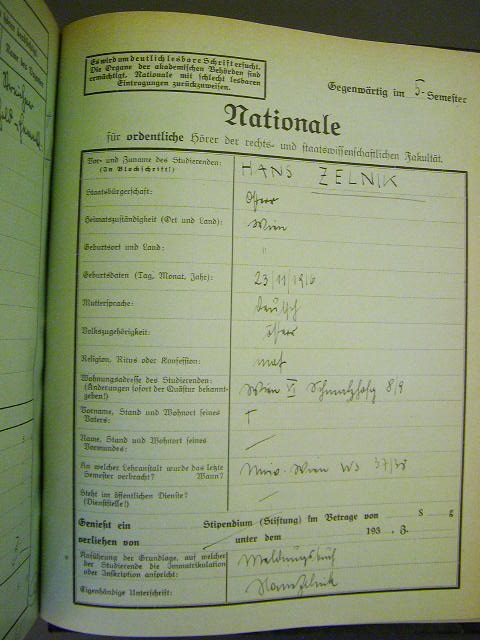 Es wird um deutlich lesbare Schrift ersucht.
Die Organe der akademischen Behörden sind
ermächtigt, Nationale mit schlecht lesbaren
Eintragungen zurückzuweisen.
Gegenwärtig im 5. Semester
Nationale
für ordentliche Hörer der rechts- und staatswissenschaftlichen Fakultät.
Vor- und Zuname des Studierenden: HANS ZELNIK
(In Blockschrift!)
Staatsbürgerschaft: Österr
Heimatzuständigkeit (Ort und Land): Wien
Geburtsort und Land: "
Geburtsdaten (Tag, Monat, Jahr): 23/11/1916
Muttersprache: deutsch
Volkszugehörigkeit: österr
Religion, Ritus oder Konfession: mos
Wohnungsadresse des Studierenden: Wien VI 8/9
(Änderungen sofort der Quästur bekannt-
geben!)
Vorname, Stand und Wohnort seines
Vaters: †
Name, Stand und Wohnort seines
Vormundes: /
An welcher Lehranstalt wurde das letzte
Semester verbracht? Wann? Univ. Wien WS 37/38
Steht im öffentlichen Dienste?
(Dienststelle!) /
Genießt ein Stipendium (Stiftung) im Betrage von S g
verliehen von unter dem 193 , Z.
Anführung der Grundlage, auf welcher
der Studierende die Immatrikulation
oder Inskription anspricht: Meldungsbuch
Eigenhändige Unterschrift: Hans Zelnik